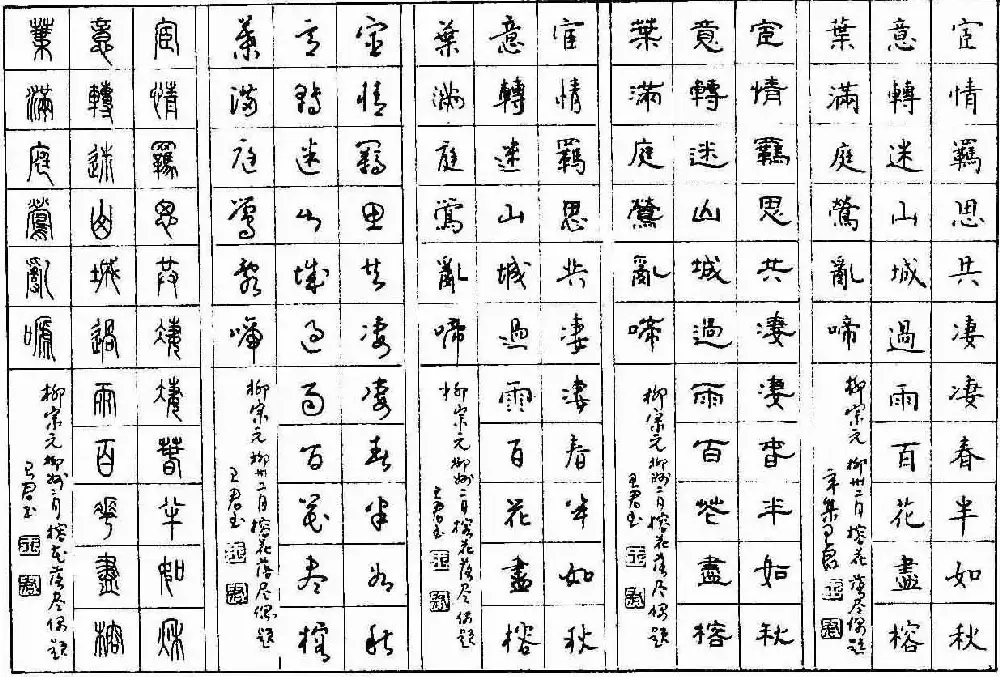 宦情羈思共凄凄春半如秋
意轉迷山城過雨百花盡榕
葉滿庭鶯亂啼
柳宗元柳州二月榕花落尽偶題
辛集王君
宦情羈思共凄凄春半如秋
意轉迷山城過雨百花盡榕
葉滿庭鶯亂啼
柳宗元柳州二月榕花落尽偶題
王君
宦情羈思共凄凄春半如秋
意轉迷山城過雨百花盡榕
葉滿庭鶯亂啼
柳宗元柳州二月榕花落尽偶題
王君
宦情羈思共凄凄春半如秋
意轉迷山城過雨百花尽榕
葉滿庭鶯亂啼
柳宗元柳州二月榕花落尽偶題
王君
宦情羈思共凄凄春半如秋
意轉迷山城過雨百花盡榕
葉滿庭鶯亂啼
柳宗元柳州二月榕花落尽偶題
王君